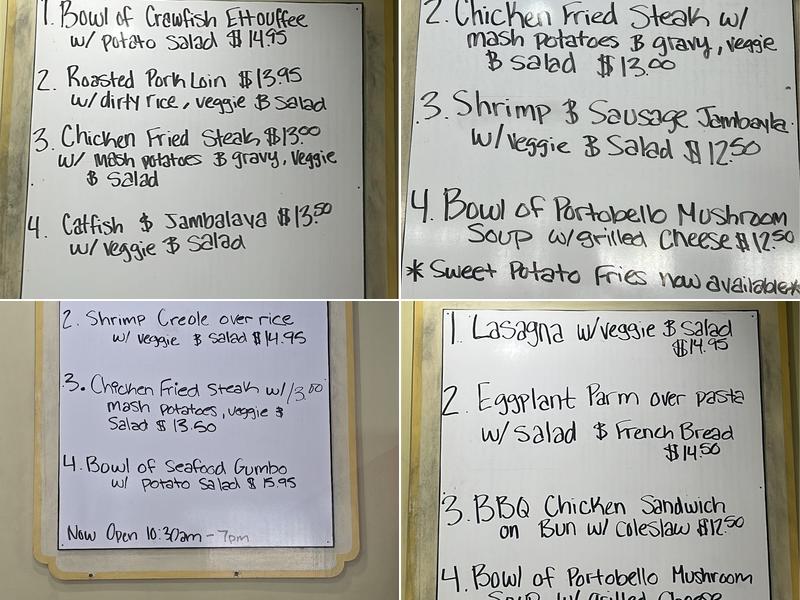 1. Bowl of Crawfish Ettouffee
w/ potato Salad $14.95
2. Roasted Pork Loin $13.95
w/ dirty rice, veggie & Salad
3. Chicken Fried Steak $13.00
w/ mash potatoes & gravy, veggie
& Salad
4. Catfish & Jambalaya $13.50
w/ veggie & Salad
2. Chicken Fried Steak w/
mash potatoes & gravy, veggie
& salad $13.00
3. Shrimp & Sausage Jambayla
w/ veggie & Salad $12.50
4. Bowl of Portobello Mushroom
Soup w/ grilled Cheese $12.50
*Sweet Potato Fries now available*
2. Shrimp Creole over rice
w/ veggie & Salad $14.95
3. Chicken Fried Steak w/ 13.00
mash potatoes, veggie &
Salad $13.50
4. Bowl of Seafood Gumbo
w/ potato Salad $15.95
Now Open 10:30am - 7pm
1. Lasagna w/veggie & Salad
$14.95
2. Eggplant Parm over pasta
w/ Salad & French Bread
$14.50
3. BBQ Chicken Sandwich
on Bun w/ Coleslaw $12.50
4. Bowl of Portobello Mushroom
Soup w/ grilled Cheese